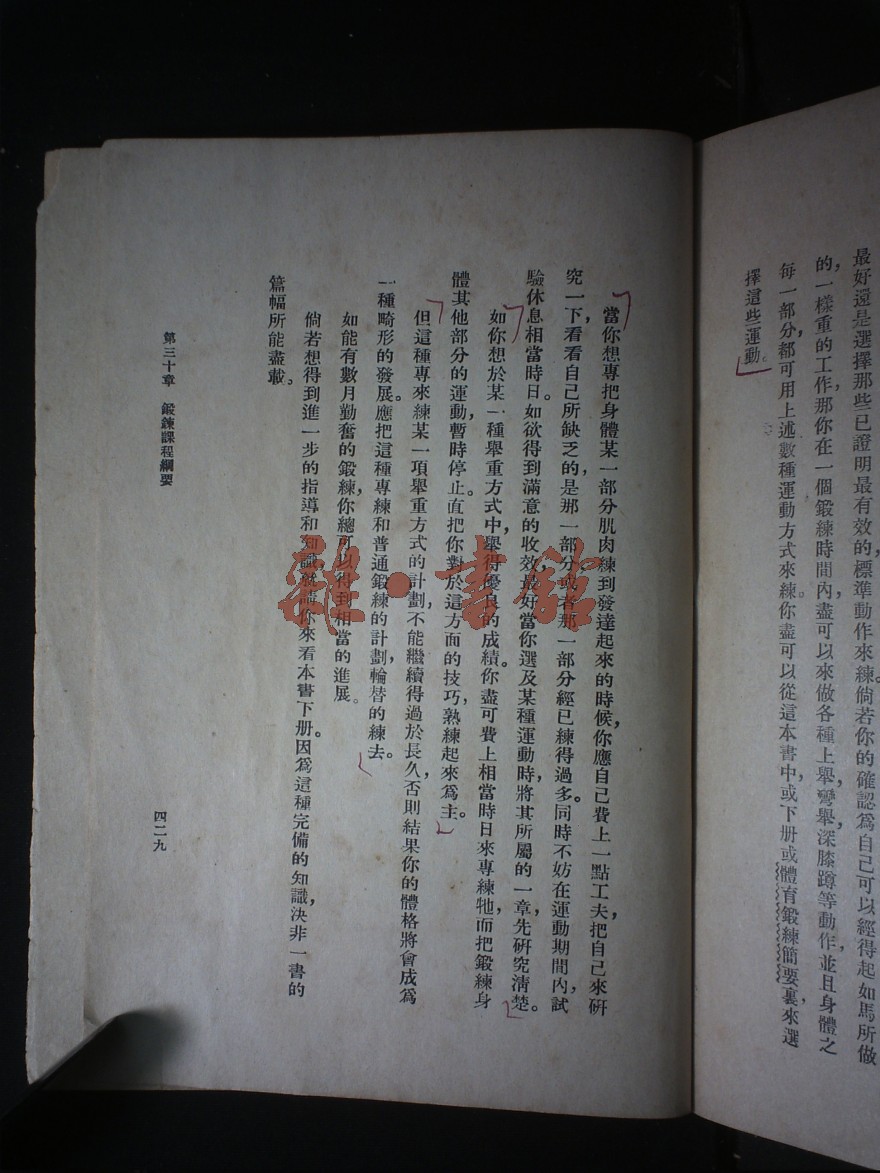 最好還是選擇那些已證明最有效的，標準動作來練。倘若你的確認爲自己可以經得起如馬所做
的，一樣重的工作，那你在一個鍛練時間內，盡可以來做各種上舉，彎舉，深膝蹲等動作，並且身體之
每一部分，都可用上述數種運動方式來練。你盡可以從這本書中，或下册或體育鍛練簡要裏來選
擇這些運動。
當你想專把身體某一部分肌肉練到發達起來的時候，你應自己費上一點工夫，把自己來研
究一下，看看自己所缺乏的，是那一部分。或者那一部分經已練得過多。同時不妨在運動期間內，試
驗休息相當時日。如欲得到滿意的收效，最好當你選及某種運動時，將其所屬的一章，先研究淸楚。
如你想於某一種舉重方式中，舉得優良的成績。你盡可費上相當時日來專練牠，而把鍛練身
體其他部分的運動，暫時停止。直把你對於這方面的技巧，熟練起來爲主。
但這種專來練某一項舉重方式的計劃，不能繼續得過於長久，否則結果你的體格將會成爲
一種畸形的發展。應把這種專練和普通鍛練的計劃，輪替的練去。
如能有數月勤奮的鍛練，你總可以得到相當的進展。
倘若想得到進一步的指導和知識，就請你來看本書下册。因爲這種完備的知識，決非一書的
篇幅所能盡載。
第三十章　鍛鍊課程綱要
四二九
雜·書館